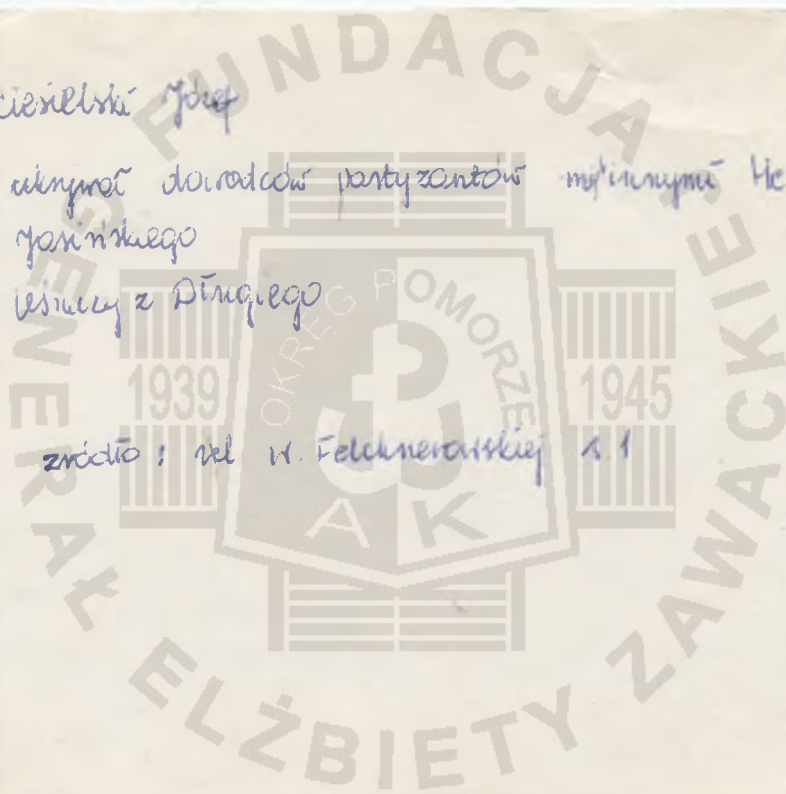 Ciesielski Józef
ukrywał dowódców partyzantów między innymi He
Jasińskiego
leśniczy z Długiego
źródło : rel W. Felchnerowskiej s. 1
FUNDACJA
GENERAŁ ELŻBIETY ZAWACKIEJ
OKRĘG POMORZE
1939
1945
AK